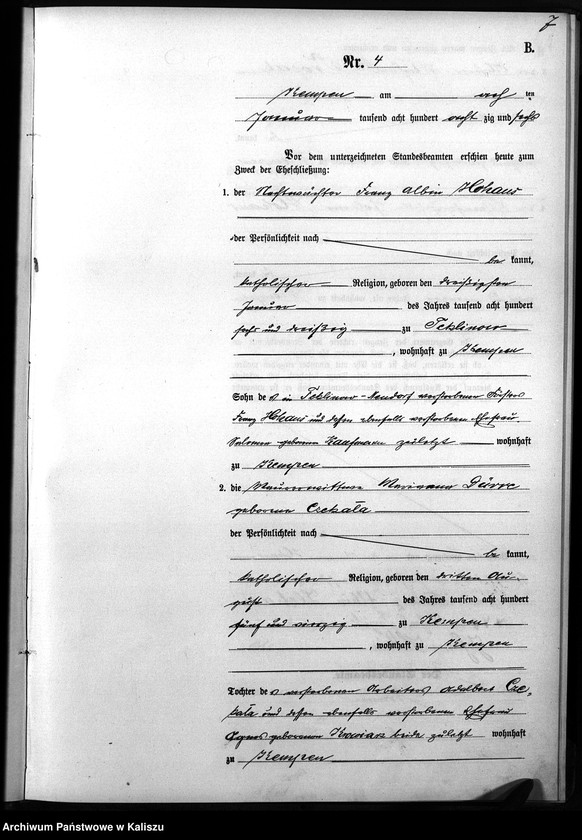 7
B.
Nr. 4
Kempen am acht ten
Januar tausend acht hundert acht zig und sechs
Vor dem unterzeichneten Standesbeamten erschien heute zum
Zweck der Eheschließung:
1. der Nachtwächter Franz Albin Hohaus
der Persönlichkeit nach
be kannt,
katholischer Religion, geboren den dreißigsten
Januar des Jahres tausend acht hundert
sechs und dreißig zu Teklinow
, wohnhaft zu Kempen
Sohn des in Teklinow-Neudorf verstorbenen
Franz Hohaus und dessen ebenfalls verstorbenen Ehefrau
Salomea geborenen Kaufmann zuletzt wohnhaft
zu Kempen
2. die Maurerwittwe Marianna Dürre
geborene Czekała
der Persönlichkeit nach
be kannt,
katholischer Religion, geboren den dritten Au-
gust des Jahres tausend acht hundert
fünf und vierzig zu Kempen
, wohnhaft zu Kempen
Tochter des verstorbenen Arbeiters Adalbert Cze-
kała und dessen ebenfalls verstorbenen Ehefrau
Agnes geborenen beide zuletzt wohnhaft
zu Kempen
Archiwum Państwowe w Kaliszu